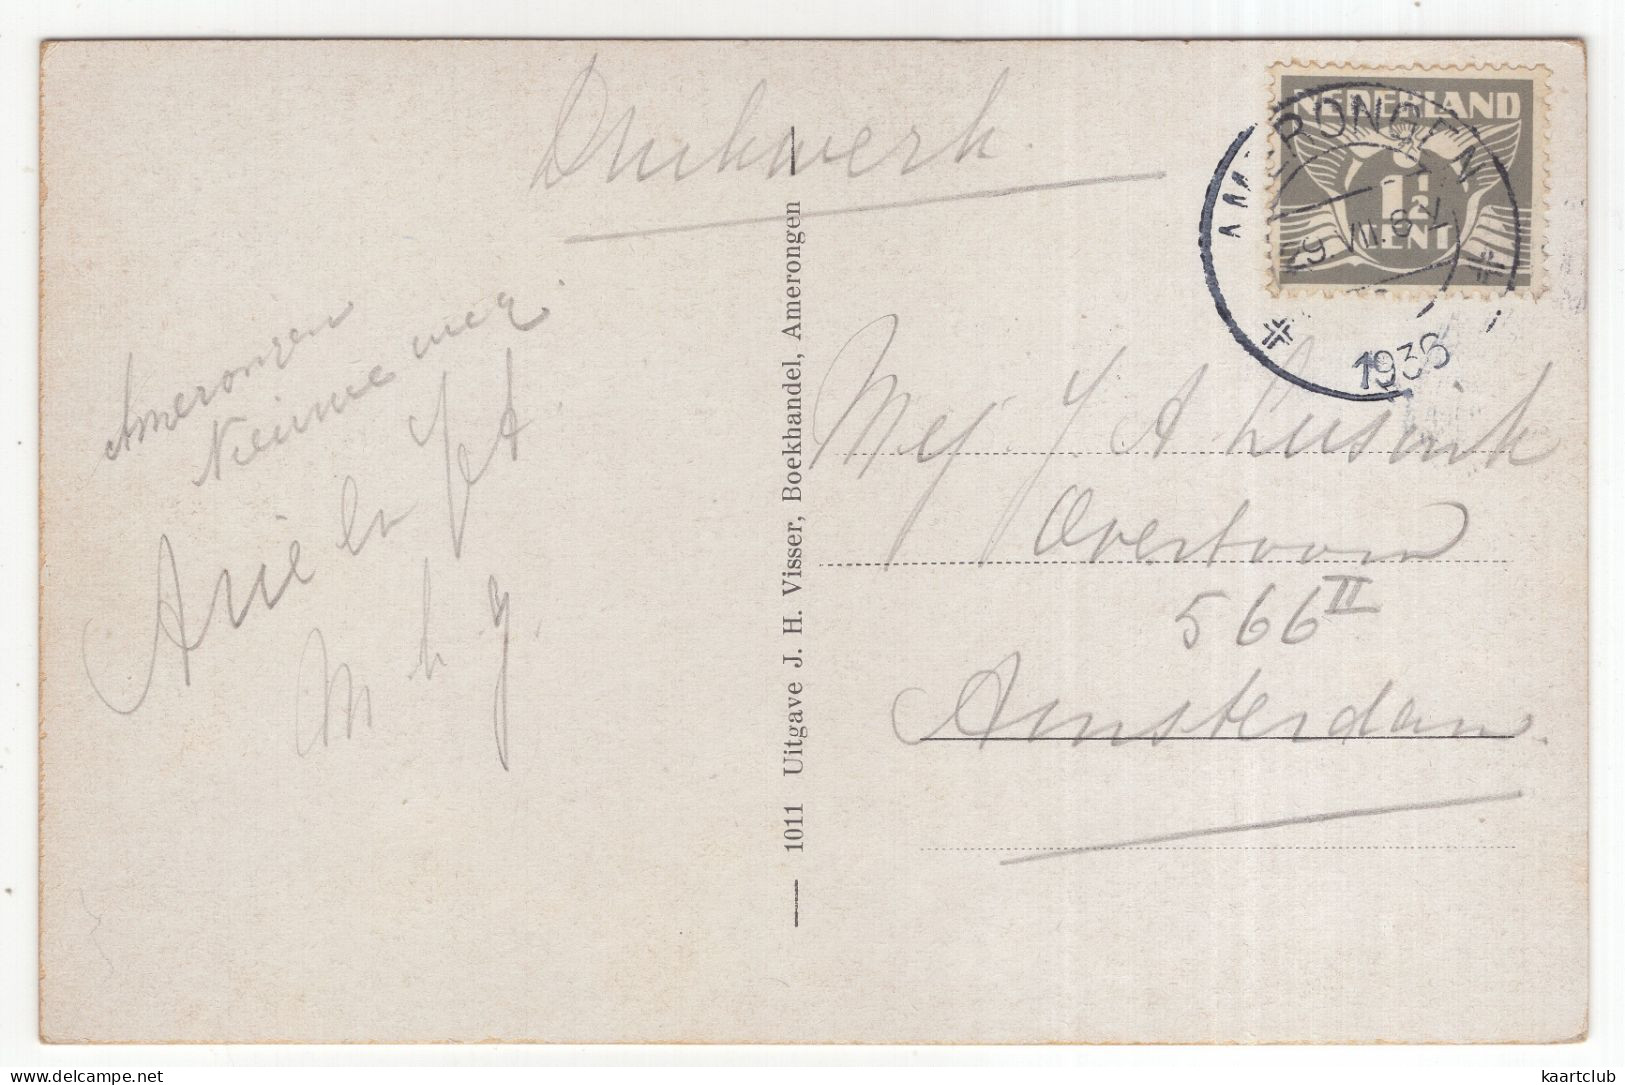 Drukwerk.
NEDERLAND
1½
CENT
AMERONGEN
1936
Amerongen
Nieuwe weg.
Arie en Jet
M h g.
1011 Uitgave J. H. Visser, Boekhandel, Amerongen
Mej J. A. Lusink
Overtoom
566 II
Amsterdam.
delcampe.net
kaartclub